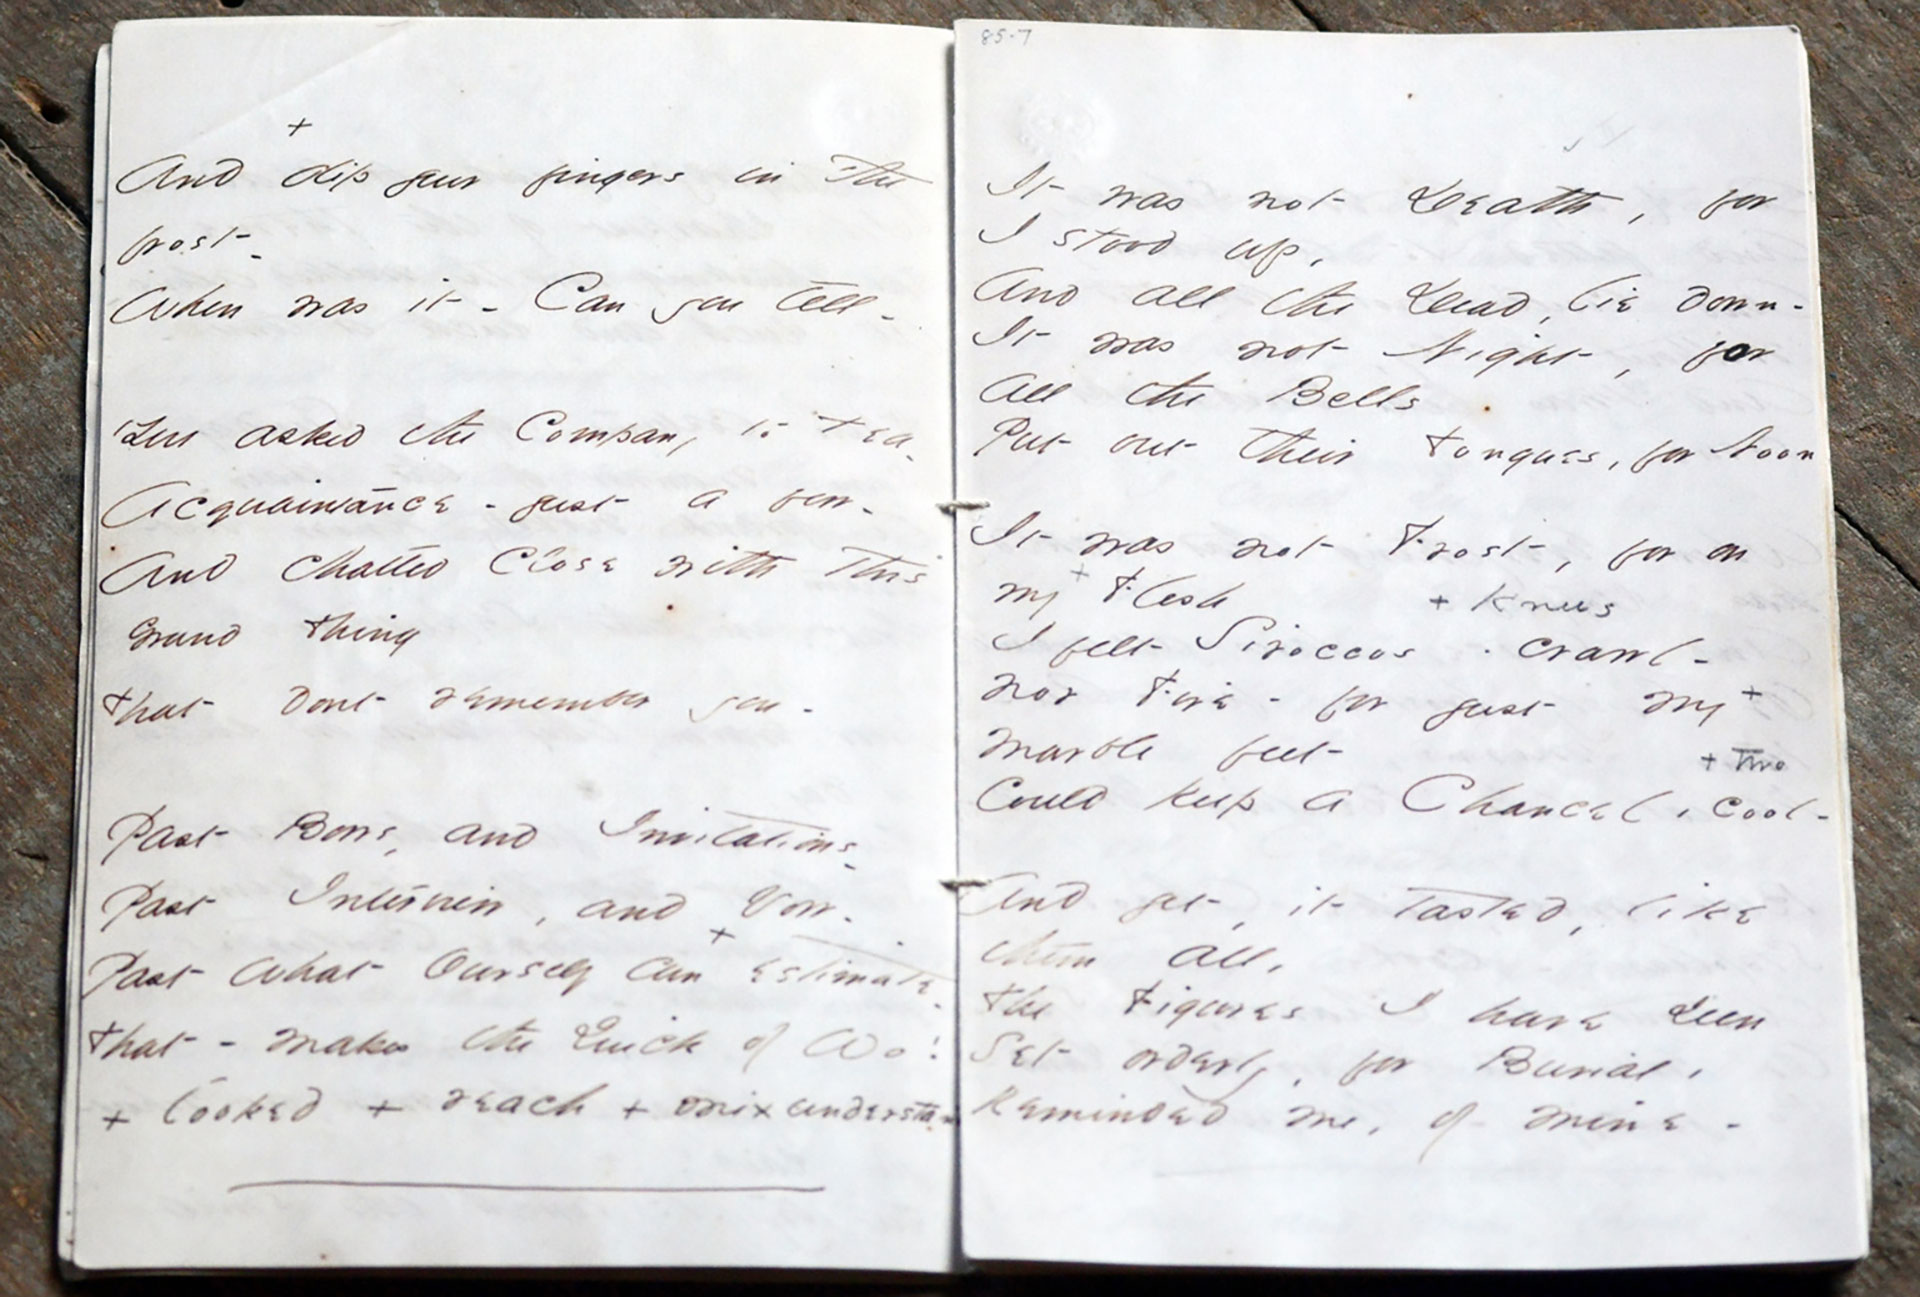 +
And dip your fingers in the
frost -
When was it - Can you tell -
You asked the Company to tea -
Acquaintance - just a few -
And chatted close with this
Grand thing
That dont remember you -
Past Bows, and Invitations -
Past Interview, and Vow -
+
Past what Ourself can estimate -
That - makes the Quick of Wo!
+ looked + reach + mix + understand
85-7
It was not Death, for
I stood up,
And all the Dead, lie down -
It was not Night, for
all the Bells
Put out their Tongues, for Noon
It was not Frost, for on
my + Flesh + Knees
I felt Siroccos - crawl -
nor Fire - for just my +
marble feet + Two
Could keep a Chancel, cool -
And yet, it tasted, like
them all,
The Figures I have seen
Set orderly, for Burial,
Reminded me, of mine -